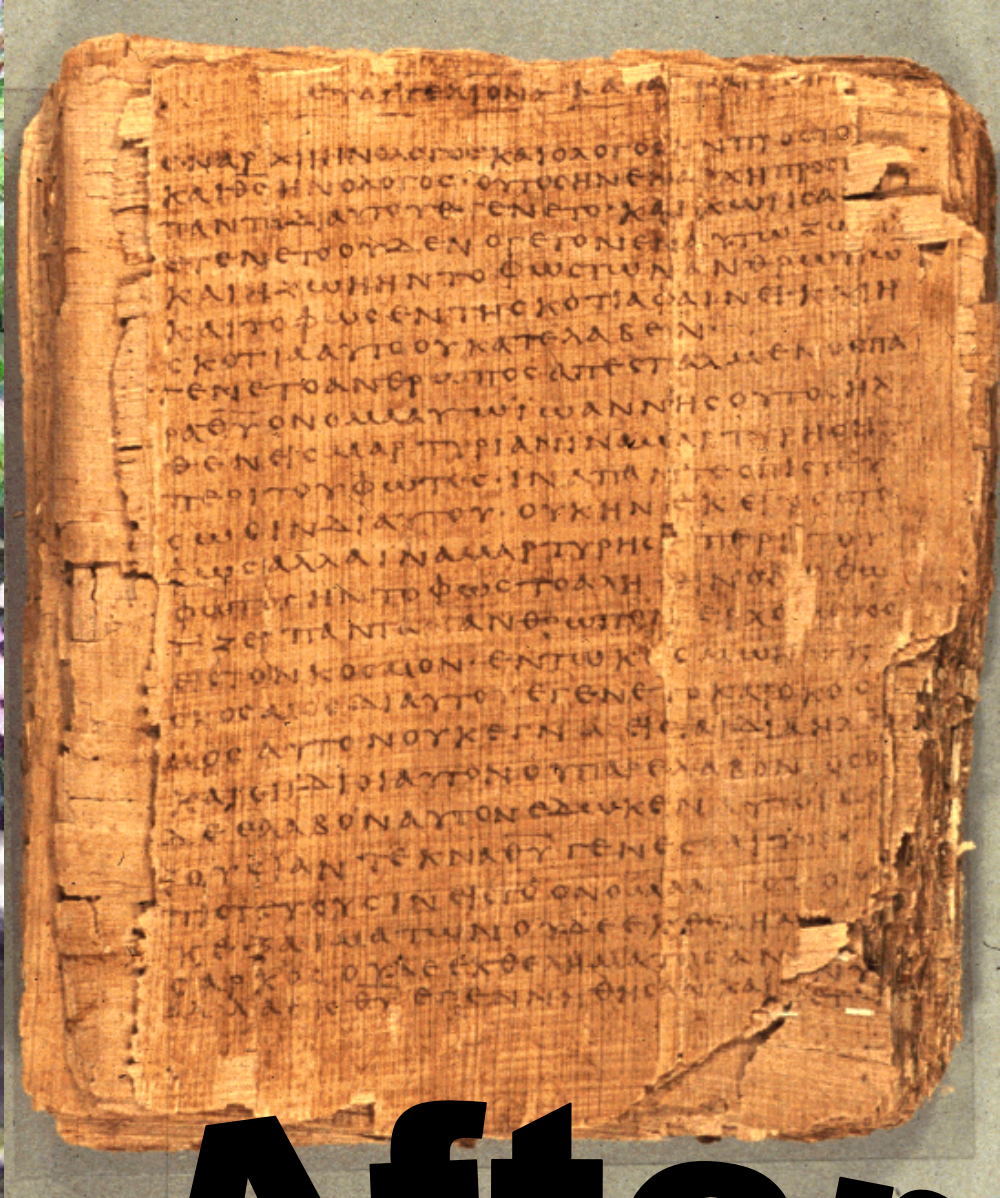 ΕΥΑΓΓΕΛΙΟΝ ΚΑΤΑ
ΕΝ ΑΡΧΗ ΗΝ Ο ΛΟΓΟϹ ΚΑΙ Ο ΛΟΓΟϹ ΗΝ ΠΡΟϹ ΤΟ
ΚΑΙ ΘϹ ΗΝ Ο ΛΟΓΟϹ· ΟΥΤΟϹ ΗΝ ΕΝ ΑΡΧΗ ΠΡΟϹ
ΠΑΝΤΑ ΔΙ ΑΥΤΟΥ ΕΓΕΝΕΤΟ· ΚΑΙ ΧΩΡΙϹ
ΕΓΕΝΕΤΟ ΟΥΔΕΝ Ο ΓΕΓΟΝΕΝ ΕΝ ΑΥΤΩ ΖΩΗ
ΚΑΙ Η ΖΩΗ ΗΝ ΤΟ ΦΩϹ ΤΩΝ ΑΝΘΡΩΠΩ
ΚΑΙ ΤΟ ΦΩϹ ΕΝ ΤΗ ϹΚΟΤΙΑ ΦΑΙΝΕΙ· ΚΑΙ Η
ϹΚΟΤΙΑ ΑΥΤΟ ΟΥ ΚΑΤΕΛΑΒΕΝ·
ΕΓΕΝΕΤΟ ΑΝΘΡΩΠΟϹ ΑΠΕϹΤΑΛΜΕΝΟϹ ΠΑ
ΡΑ ΘΥ ΟΝΟΜΑ ΑΥΤΩ ΙΩΑΝΝΗϹ ΟΥΤΟϹ ΗΛ
ΘΕΝ ΕΙϹ ΜΑΡΤΥΡΙΑΝ ΙΝΑ ΜΑΡΤΥΡΗϹΗ
ΠΕΡΙ ΤΟΥ ΦΩΤΟϹ· ΙΝΑ ΠΑΝΤΕϹ ΠΙϹΤΕΥ
ϹΩϹΙΝ ΔΙ ΑΥΤΟΥ· ΟΥΚ ΗΝ ΕΚΕΙΝΟϹ ΤΟ
ΦΩϹ ΑΛΛΑ ΙΝΑ ΜΑΡΤΥΡΗϹΗ ΠΕΡΙ ΤΟΥ
ΦΩΤΟϹ· ΗΝ ΤΟ ΦΩϹ ΤΟ ΑΛΗΘΙΝΟΝ Ο ΦΩ
ΤΙΖΕΙ ΠΑΝΤΑ ΑΝΘΡΩΠΟΝ ΕΡΧΟΜΕΝΟ
ΕΙϹ ΤΟΝ ΚΟϹΜΟΝ· ΕΝ ΤΩ ΚΟϹΜΩ ΗΝ
ΚΟϹΜΟϹ ΔΙ ΑΥΤΟΥ ΕΓΕΝΕΤΟ ΚΑΙ Ο ΚΟϹ
ΜΟϹ ΑΥΤΟΝ ΟΥΚ ΕΓΝΩ ΕΙϹ ΤΑ ΙΔΙΑ ΗΛΘΕ
ΚΑΙ ΟΙ ΙΔΙΟΙ ΑΥΤΟΝ ΟΥ ΠΑΡΕΛΑΒΟΝ ΟϹΟΙ
ΔΕ ΕΛΑΒΟΝ ΑΥΤΟΝ ΕΔΩΚΕΝ ΑΥΤΟΙϹ
ΞΟΥϹΙΑΝ ΤΕΚΝΑ ΘΥ ΓΕΝΕϹΘΑΙ ΤΟΙϹ
ΠΙϹΤΕΥΟΥϹΙΝ ΕΙϹ ΤΟ ΟΝΟΜΑ
Κ ΕΞ ΑΙΜΑΤΩΝ ΟΥΔΕ ΕΚ ΘΕΛΗΜΑ
ϹΑΡΚΟϹ ΟΥΔΕ ΕΚ ΘΕΛΗΜΑΤΟϹ ΑΝ
ΑΛΛ ΕΚ ΘΥ ΕΓΕΝΝΗΘΗϹΑΝ ΚΑΙ
After